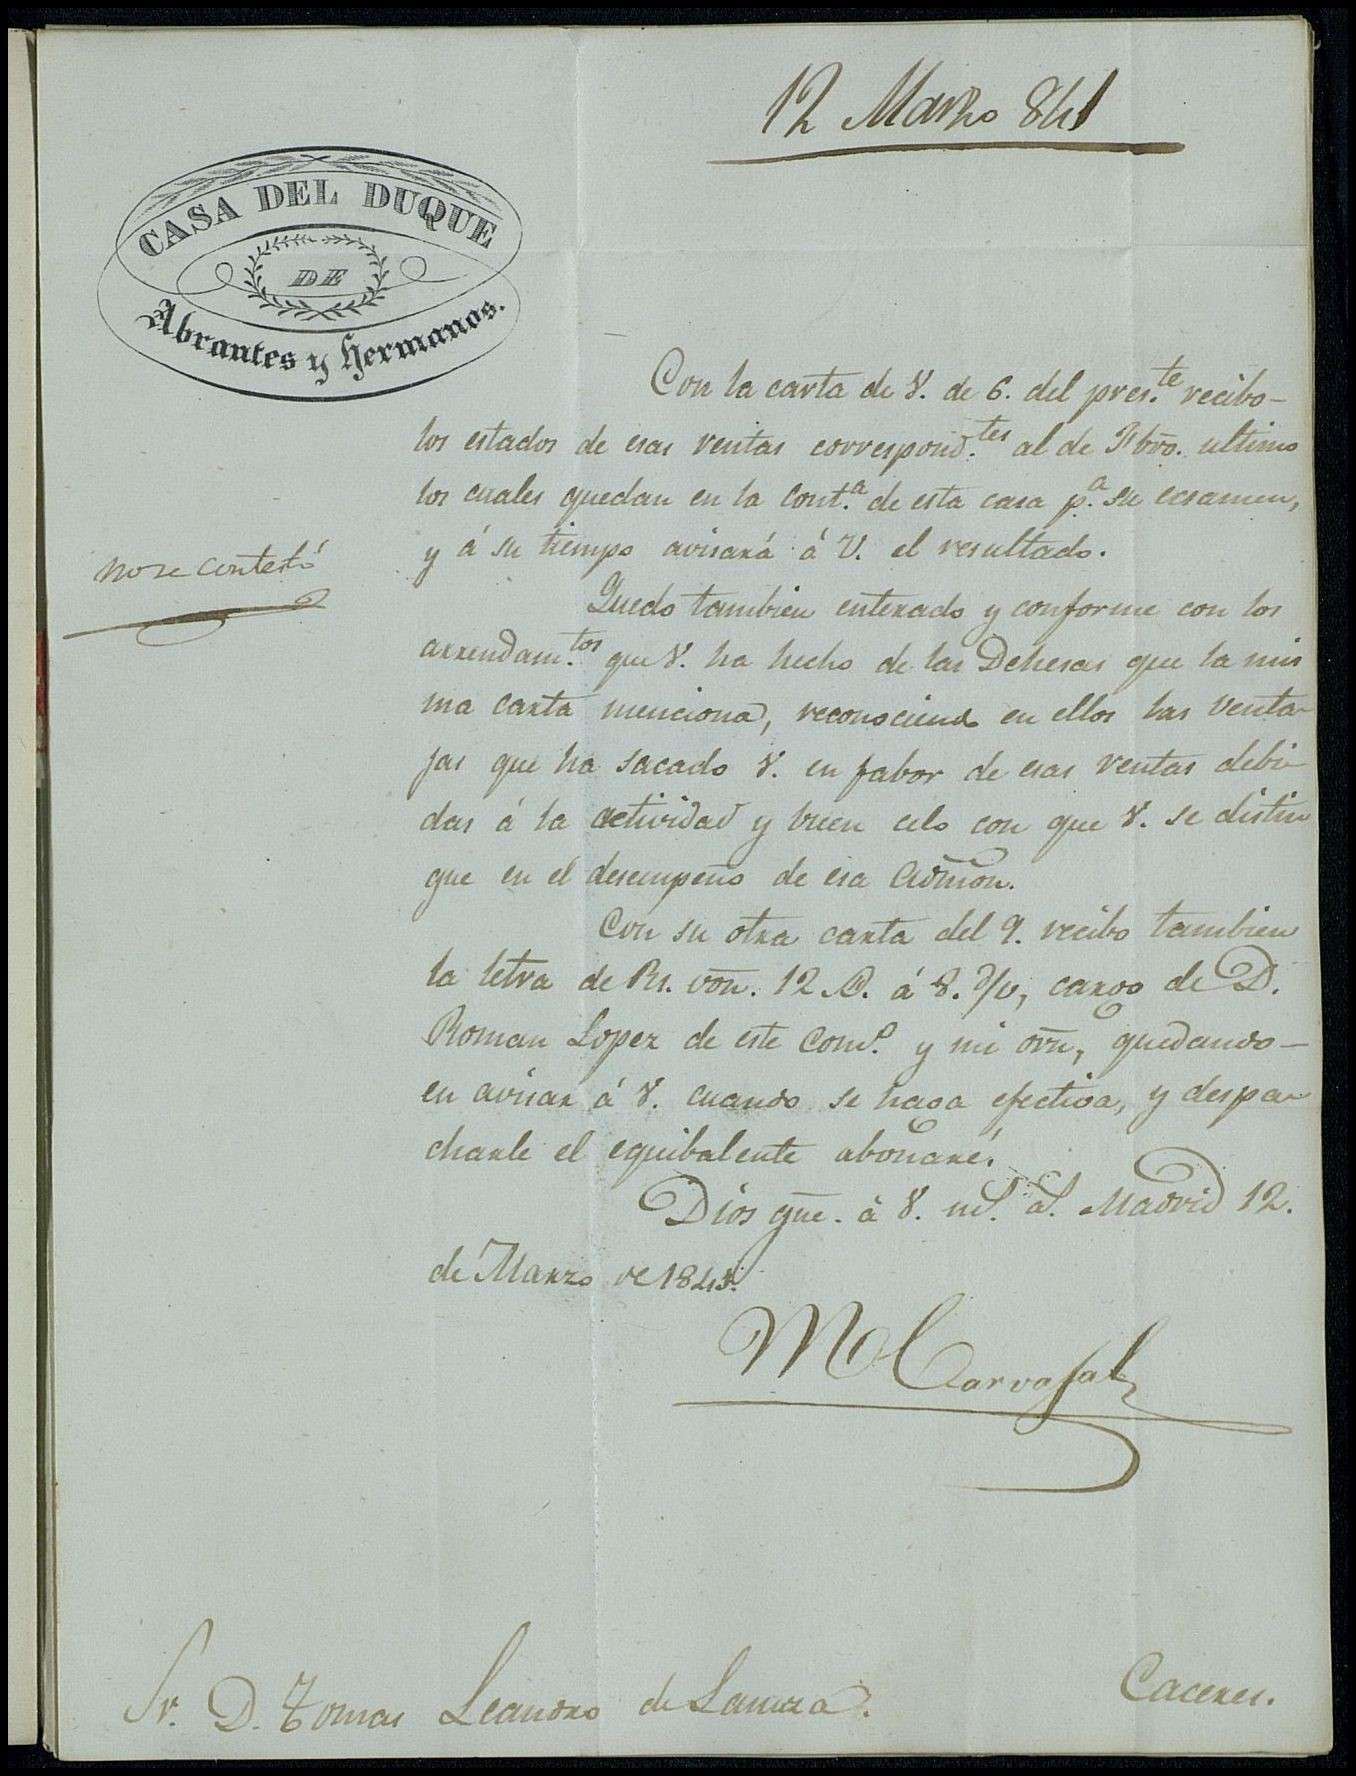 12 Marzo 841
CASA DEL DUQUE
DE
Abrantes y Hermanos.
Con la carta de V. de 6. del pres.te recibo
los estados de esas rentas correspond.tes al de Fbro. ultimo
los cuales quedan en la Cont.a de esta casa p.a su ecsamen,
y á su tiempo avisará á V. el resultado.
no se contestó
Quedo tambien enterado y conforme con los
arrendam.tos que V. ha hecho de las Dehesas que la mis
ma carta menciona, reconociendo en ellos las venta
jas que ha sacado V. en fabor de esas rentas debi
das á la actividad y buen celo con que V. se distin
gue en el desempeño de esa Admon.
Con su otra carta del 9. recibo tambien
la letra de Rs. von. 12 á 8. d/v, cargo de D.
Roman Lopez de este Com.o y mi orn, quedando
en avisar á V. cuando se haga efectiva, y despa
charle el equibalente abonaré.
Dios gue. á V. ms. as. Madrid 12.
de Marzo de 1841.
M Carvajal
Sr. D. Tomas Leandro de Lanuza.
Caceres.